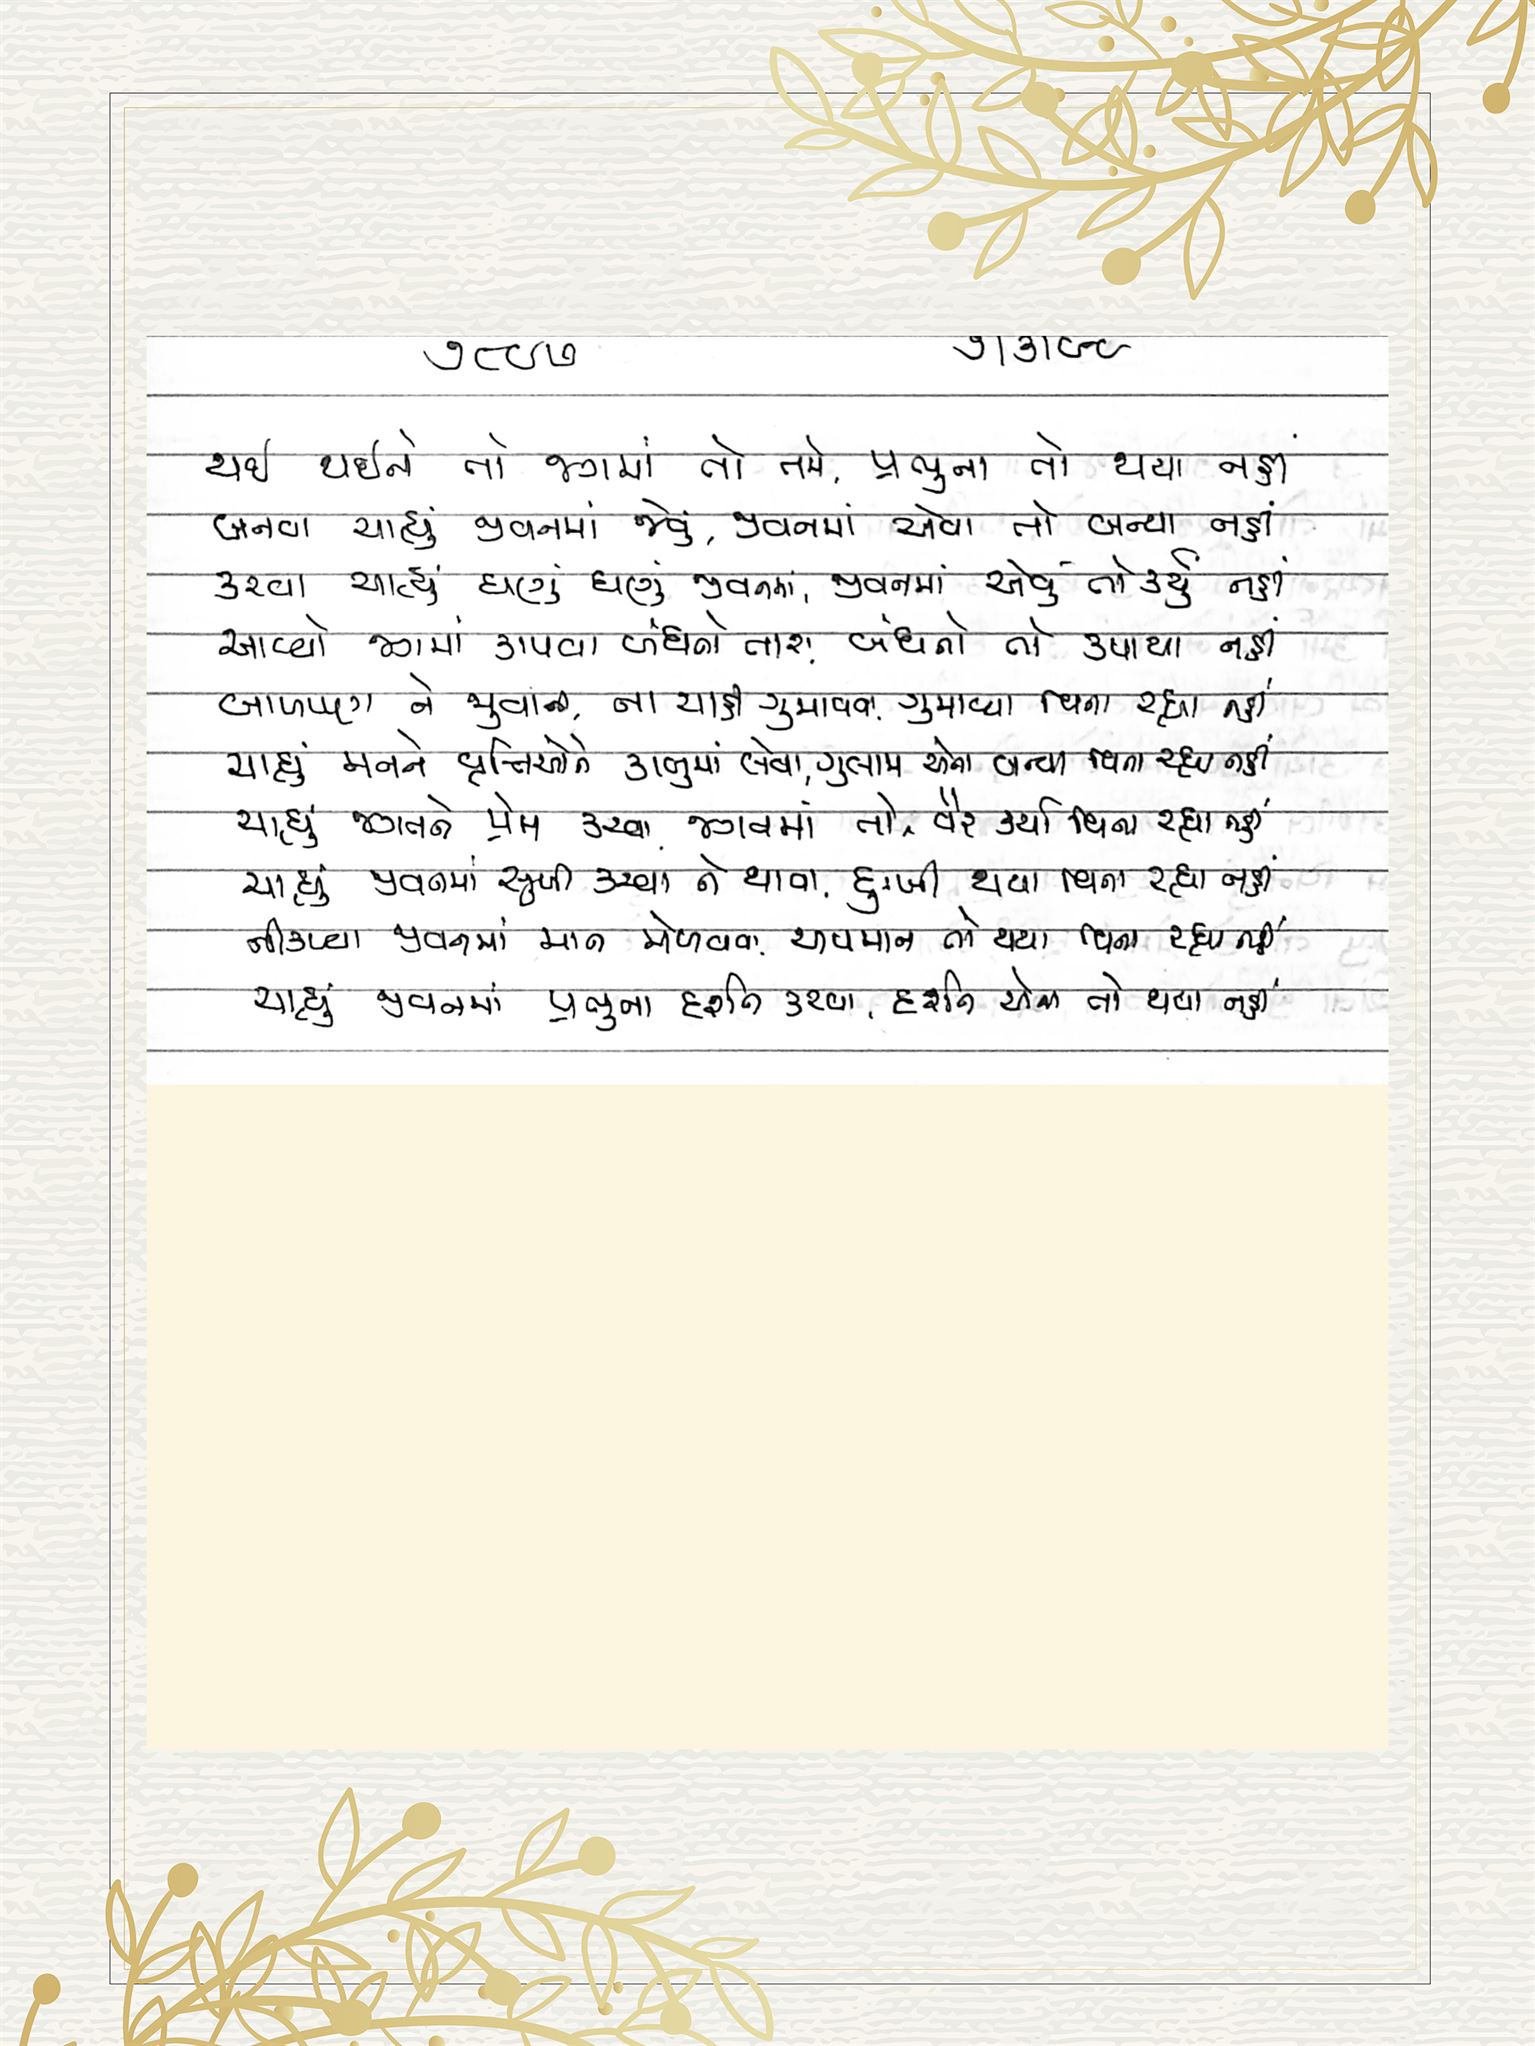 ૭૮૯૭ ૭।૩।૯૮
થઈ થઈને તો જગમાં તો તમે, પ્રભુના તો થયા નહીં
બનવા ચાહ્યું જીવનમાં જેવું, જીવનમાં એવા તો બન્યા નહીં
કરવા ચાહ્યું ઘણું ઘણું જીવનમાં, જીવનમાં એવું તો કર્યું નહીં
આવ્યો જગમાં કાપવા બંધનો તારા, બંધનો તો કપાયા નહીં
બાળપણ ને જુવાની, ના ચાહી ગુમાવવા, ગુમાવ્યા વિના રહ્યા નહીં
ચાહ્યું મનને વૃત્તિઓને કાબુમાં લેવા, ગુલામ એના બન્યા વિના રહ્યા નહીં
ચાહ્યું જગતને પ્રેમ કરવા, જગતમાં તો, વૈર કર્યા વિના રહ્યા નહીં
ચાહ્યું જીવનમાં સુખી કરવા ને થાવા, દુઃખી થયા વિના રહ્યા નહીં
નીકળ્યા જીવનમાં માન મેળવવા, અપમાન તો થયા વિના રહ્યા નહીં
ચાહ્યું જીવનમાં પ્રભુના દર્શન કરવા, દર્શન એના તો થયા નહીં